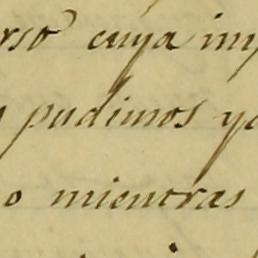 rso cuya imp
pudimos ya
o mientras